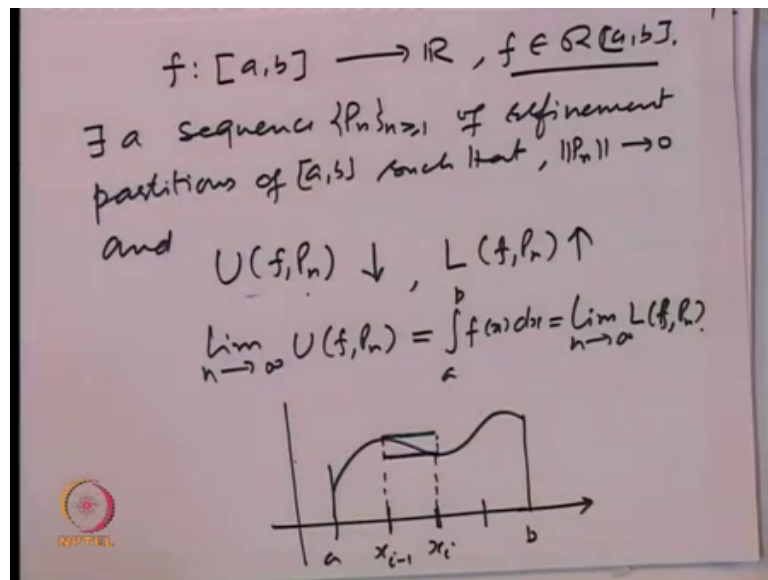 f : [a,b] ⟶ ℝ , f ∈ R[a,b].
∃ a sequence {Pₙ}ₙ≥₁ of refinement
partitions of [a,b] such that, ||Pₙ|| → 0
and U(f,Pₙ) ↓ , L(f,Pₙ) ↑
lim_{n→∞} U(f,Pₙ) = ∫_a^b f(x)dx = lim_{n→∞} L(f,Pₙ).
a x_{i-1} x_i b
NPTEL